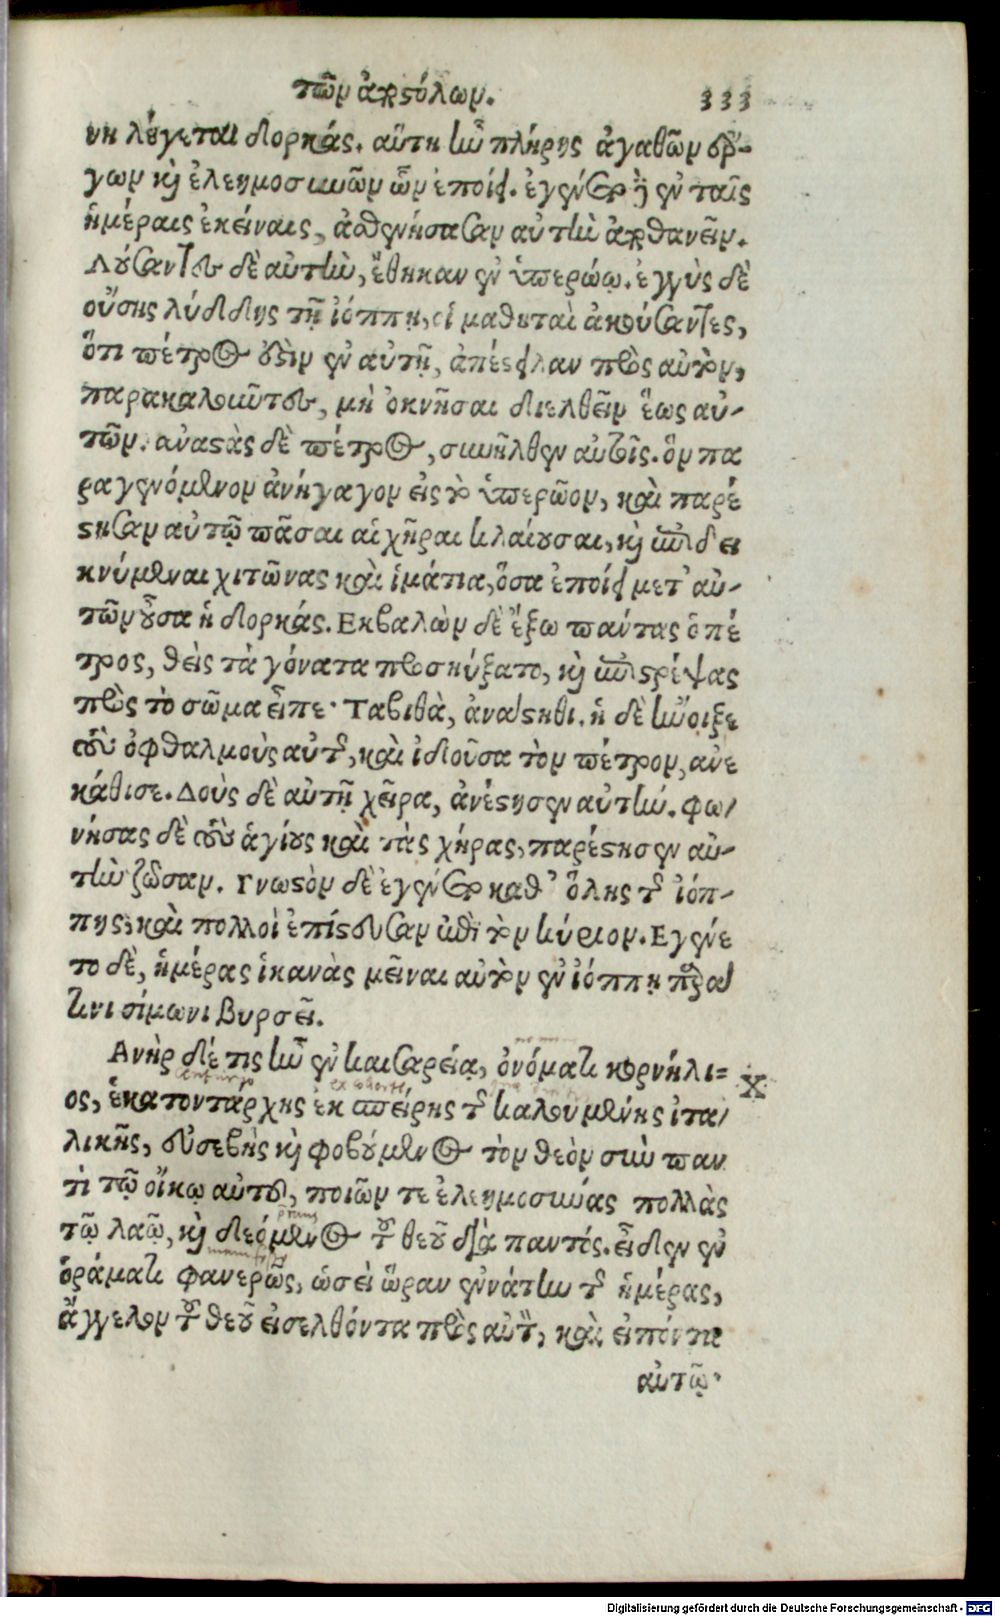 τῶν ἀποστόλων. 333
νη λέγεται δορκάς. αὕτη ἦν πλήρης ἀγαθῶν ἔρ-
γων καὶ ἐλεημοσυνῶν ὧν ἐποίει. ἐγένετο δὲ ἐν ταῖς
ἡμέραις ἐκείναις, ἀσθενήσασαν αὐτὴν ἀποθανεῖν.
Λούσαντες δὲ αὐτὴν, ἔθηκαν ἐν ὑπερώῳ. ἐγγὺς δὲ
οὔσης λύδδης τῇ ἰόππῃ, οἱ μαθηταὶ ἀκούσαντες,
ὅτι πέτρος ἐστὶν ἐν αὐτῇ, ἀπέστειλαν πρὸς αὐτὸν,
παρακαλοῦντες, μὴ ὀκνῆσαι διελθεῖν ἕως αὐ-
τῶν. ἀναστὰς δὲ πέτρος, συνῆλθεν αὐτοῖς. ὃν πα
ραγενόμενον ἀνήγαγον εἰς τὸ ὑπερῷον, καὶ παρέ
στησαν αὐτῷ πᾶσαι αἱ χῆραι κλαίουσαι, καὶ ἐπιδει
κνύμεναι χιτῶνας καὶ ἱμάτια, ὅσα ἐποίει μετ' αὐ-
τῶν οὖσα ἡ δορκάς. Εκβαλὼν δὲ ἔξω πάντας ὁ πέ
τρος, θεὶς τὰ γόνατα προσηύξατο, καὶ ἐπιστρέψας
πρὸς τὸ σῶμα εἶπε· Ταβιθὰ, ἀνάστηθι. ἡ δὲ ἤνοιξε
τοὺς ὀφθαλμοὺς αὑτῆς, καὶ ἰδοῦσα τὸν πέτρον, ἀνε
κάθισε. Δοὺς δὲ αὐτῇ χεῖρα, ἀνέστησεν αὐτήν. φω-
νήσας δὲ τοὺς ἁγίους καὶ τὰς χήρας, παρέστησεν αὐ-
τὴν ζῶσαν. Γνωστὸν δὲ ἐγένετο καθ' ὅλης τῆς ἰόπ-
πης, καὶ πολλοὶ ἐπίστευσαν ἐπὶ τὸν κύριον. Εγένε
το δὲ, ἡμέρας ἱκανὰς μεῖναι αὐτὸν ἐν ἰόππῃ παρά
τινι σίμωνι βυρσεῖ.
Ανὴρ δέ τις ἦν ἐν καισαρείᾳ, ὀνόματι κορνήλι= X
ος, ἑκατοντάρχης ἐκ σπείρης τῆς καλουμένης ἰτα-
λικῆς, εὐσεβὴς καὶ φοβούμενος τὸν θεὸν σὺν παν
τὶ τῷ οἴκῳ αὐτοῦ, ποιῶν τε ἐλεημοσύνας πολλὰς
τῷ λαῷ, καὶ δεόμενος τοῦ θεοῦ διὰ παντός. εἶδεν ἐν
ὁράματι φανερῶς, ὡσεὶ ὥραν ἐννάτην τῆς ἡμέρας,
ἄγγελον τοῦ θεοῦ εἰσελθόντα πρὸς αὐτὸν, καὶ εἰπόντα
αὐτῷ·
Digitalisierung gefördert durch die Deutsche Forschungsgemeinschaft - DFG